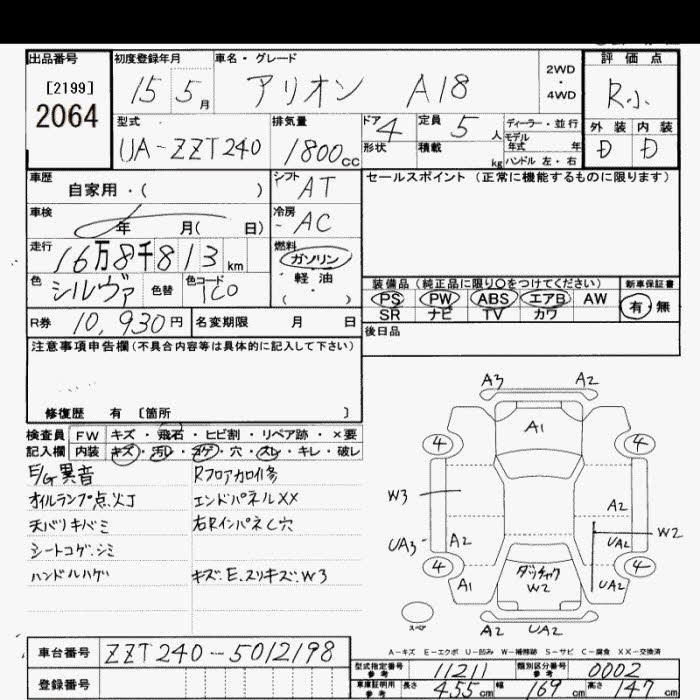 出品番号 初度登録年月 車名・グレード 評価点
[2199] 15 5月 アリオン A18 2WD・4WD R.小
2064
型式 排気量 ドア 4 定員 5人 ディーラー・並行 外装 内装
UA-ZZT240 1800cc 形状 積載 kg モデル年式 年 D D
ハンドル 左・右
車歴 自家用・( ) シフト AT セールスポイント (正常に機能するものに限ります)
車検 年 月( 日) 冷房 AC
走行 16万8千813km 燃料 ガソリン
軽油
( )
色 シルヴァ 色替 色コード 1C0 装備品 (純正品に限り○をつけてください) 新車保証書
PS PW ABS エアB AW 有・無
SR ナビ TV カワ
R券 10,930円 名変期限 月 日 後日品
注意事項申告欄(不具合内容等は具体的に記入して下さい)
修復歴 有 [箇所 ]
検査員 FW キズ・飛石・ヒビ割・リペア跡・×要
記入欄 内装 キズ・汚レ・コゲ・穴・スレ・キレ・破レ
E/G異音 Rフロアカロイ修
オイルランプ点灯 エンドパネルXX
天バリキバミ 右Rインパネビ穴
シートコゲ.シミ
ハンドルハゲ キズ.E.スリキズ.W3
A3 A2
A1
4 4
W3
A2
W2
UA3 A2 UA2
4 4
ダッチャク
W2
A1 UA2
スペア
A2 UA2
A-キズ E-エクボ U-凹み W-補修跡 S-サビ C-腐食 XX-交換済
車台番号 ZZT240-5012198
型式指定番号 参考 11211 類別区分番号 参考 0002
登録番号 車庫証明用 参考 長さ 455cm 幅 169cm 高さ 147cm